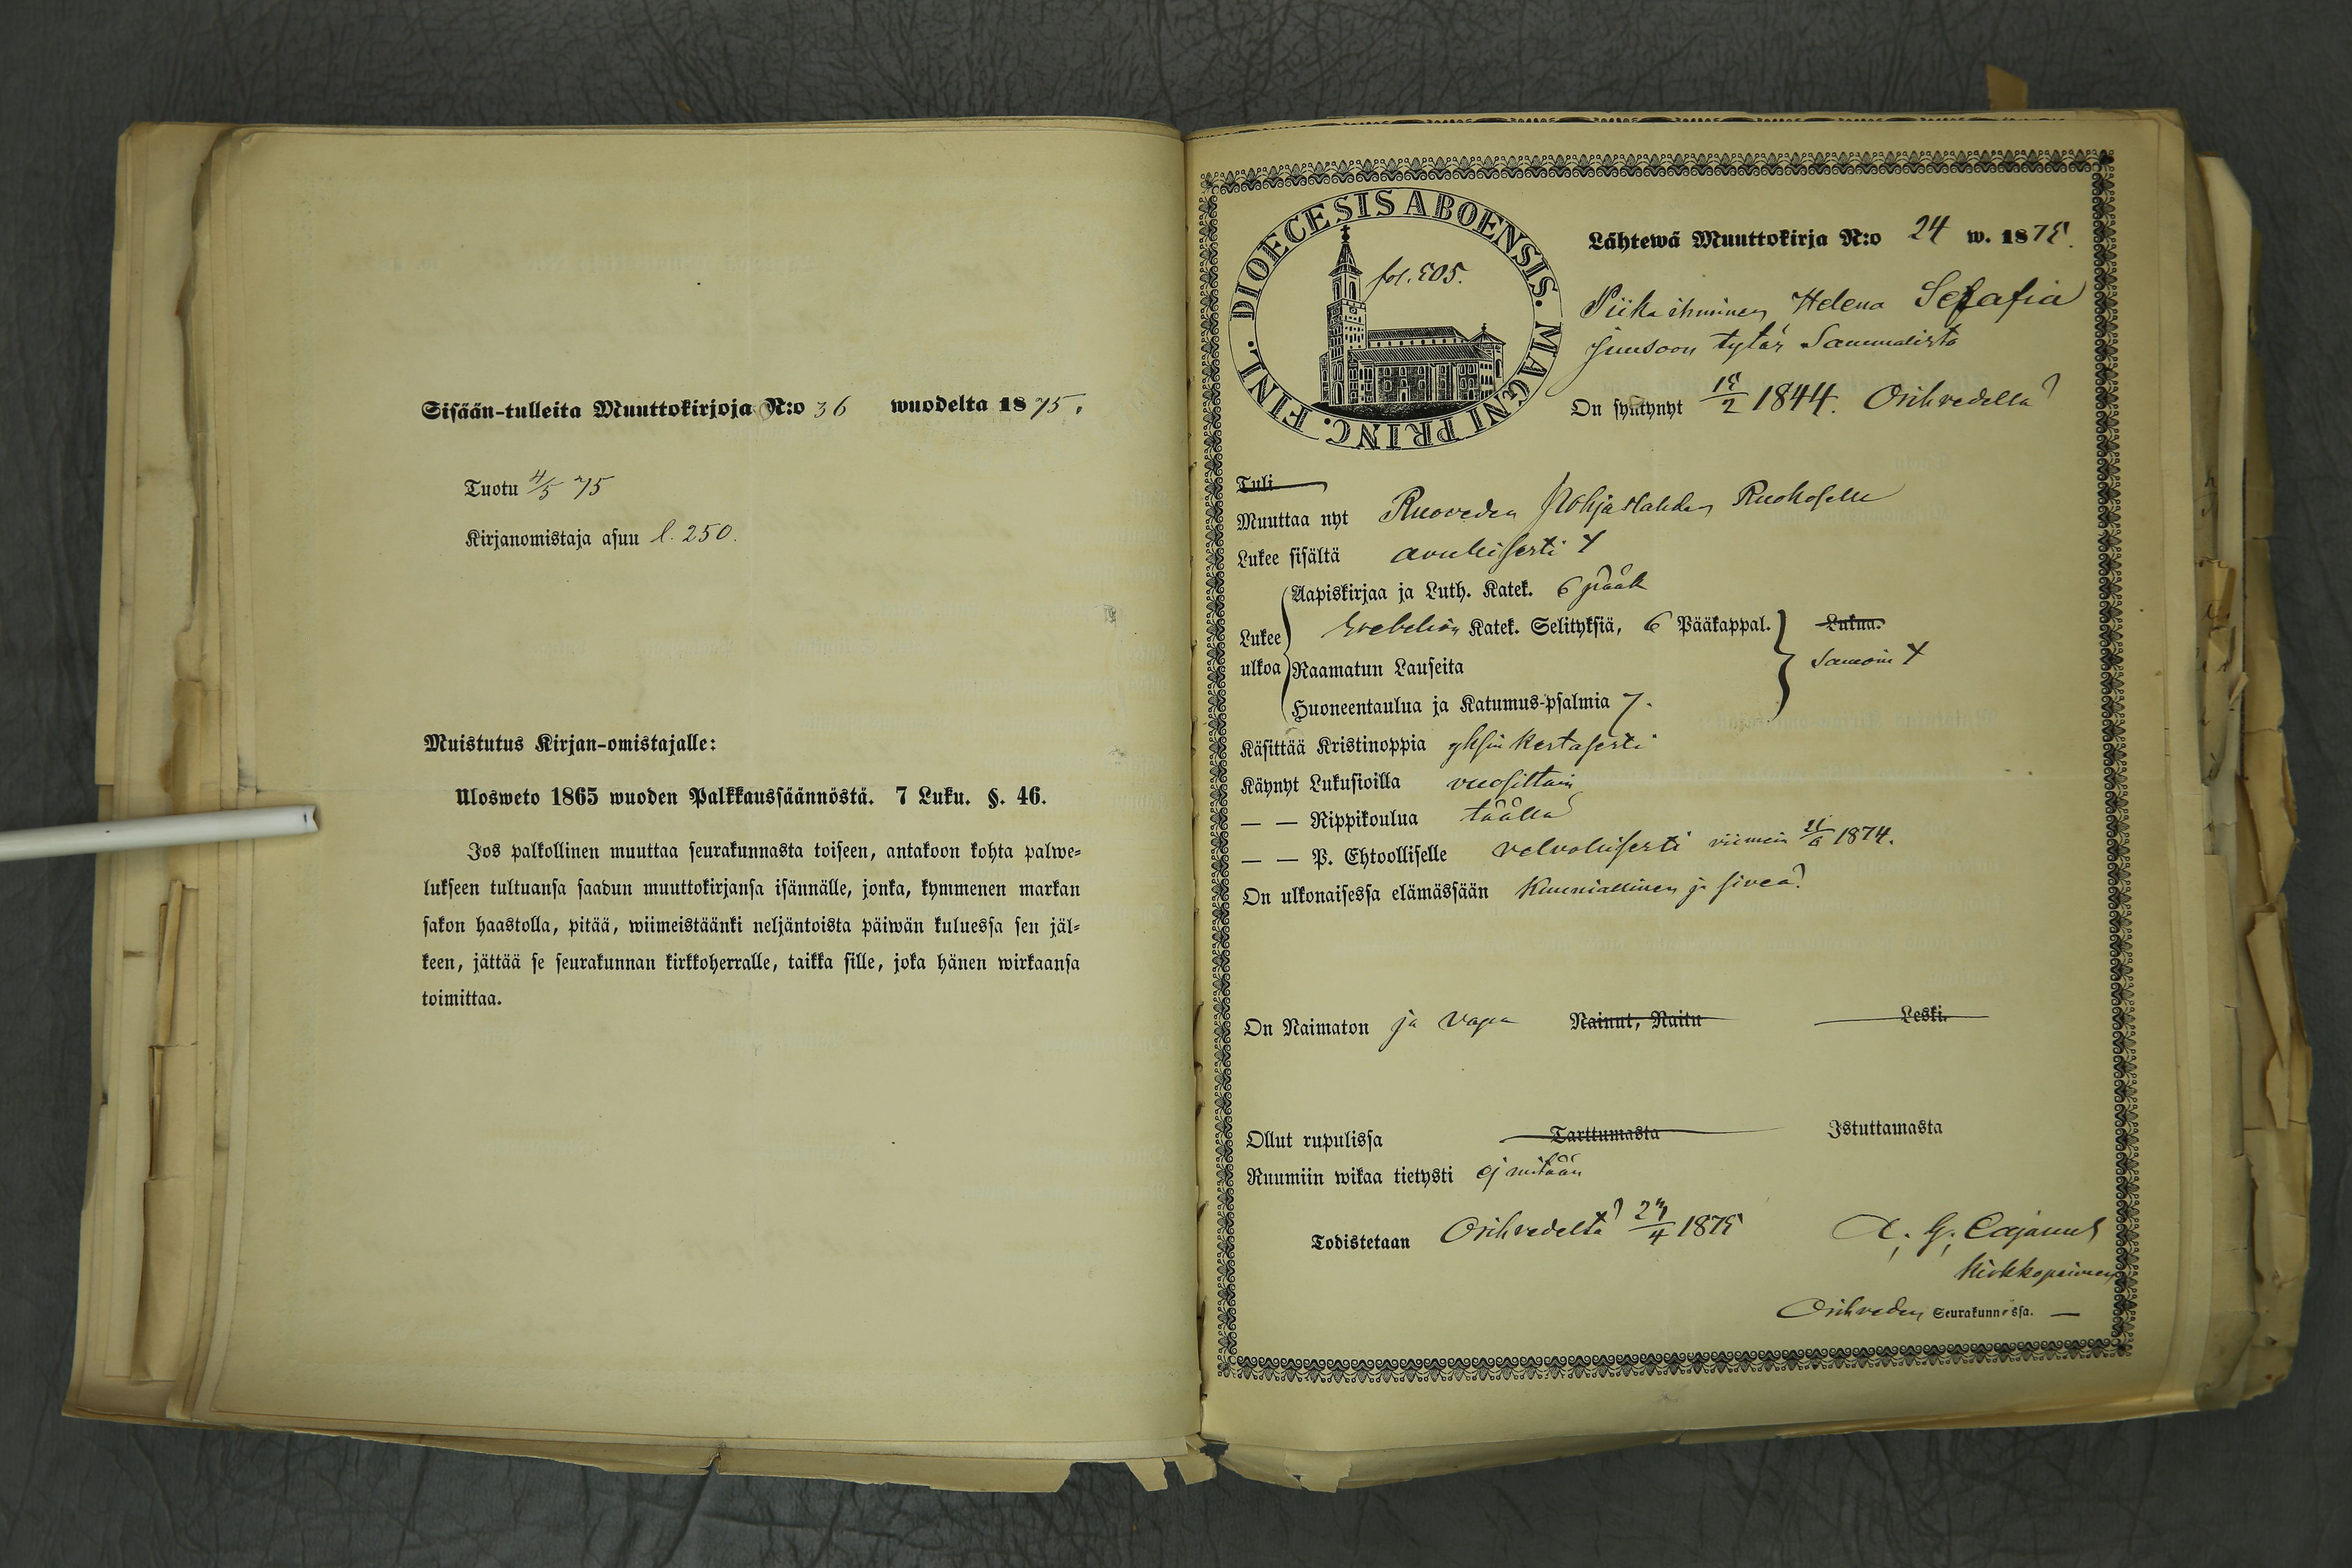 Sisään-tulleita Muuttokirjoja N:o 36 wuodelta 1875.
Tuotu 4/5 75
Kirjanomistaja asuu l. 250.
Muistutus Kirjan-omistajalle:
Ulosweto 1865 wuoden Palkkaussäännöstä. 7 Luku. §. 46.
Jos palkollinen muuttaa seurakunnasta toiseen, antakoon kohta palwe-
lukseen tultuansa saadun muuttokirjansa isännälle, jonka, kymmenen markan
sakon haastolla, pitää, wiimeistäänki neljäntoista päiwän kuluessa sen jäl-
keen, jättää se seurakunnan kirkkoherralle, taikka sille, joka hänen wirkaansa
toimittaa.
DIOECESIS ABOENSIS. MAGNI PRINC. FINL.
fol. 505.
Lähtewä Muuttokirja N:o 24 w. 1875.
Piika ihminen Helena Serafia
Juusoon tytär Sammalista
On syntynyt 15/2 1844. Orihvedellä
Tuli
Muuttaa nyt Ruoveden Pohjaslahden Ruhoselle
Lukee sisältä avullisesti +
Aapiskirjaa ja Luth. Katek. 6 pääk
Lukee Svebeliön Katek. Selityksiä, 6 Pääkappal. Lukua.
ulkoa Raamatun Lauseita Samoin +
Huoneentaulua ja Katumus-psalmia 7.
Käsittää Kristinoppia yksinkertasesti
Käynyt Lukusioilla vuosittain
— — Rippikoulua täällä
— — P. Ehtoolliselle velvolisesti viimein 1874.
On ulkonaisessa elämässään Kunniallinen ja siveä
On Naimaton ja vapa Nainut, Naitu Leski.
Ollut rupulissa Tarttumasta Istuttamasta
Ruumiin wikaa tietysti ej mitään
Todistetaan Orihvedeltä 27/4 1875 A. G. Cajanus
Kirkkoherra
Orihveden Seurakunnassa. —